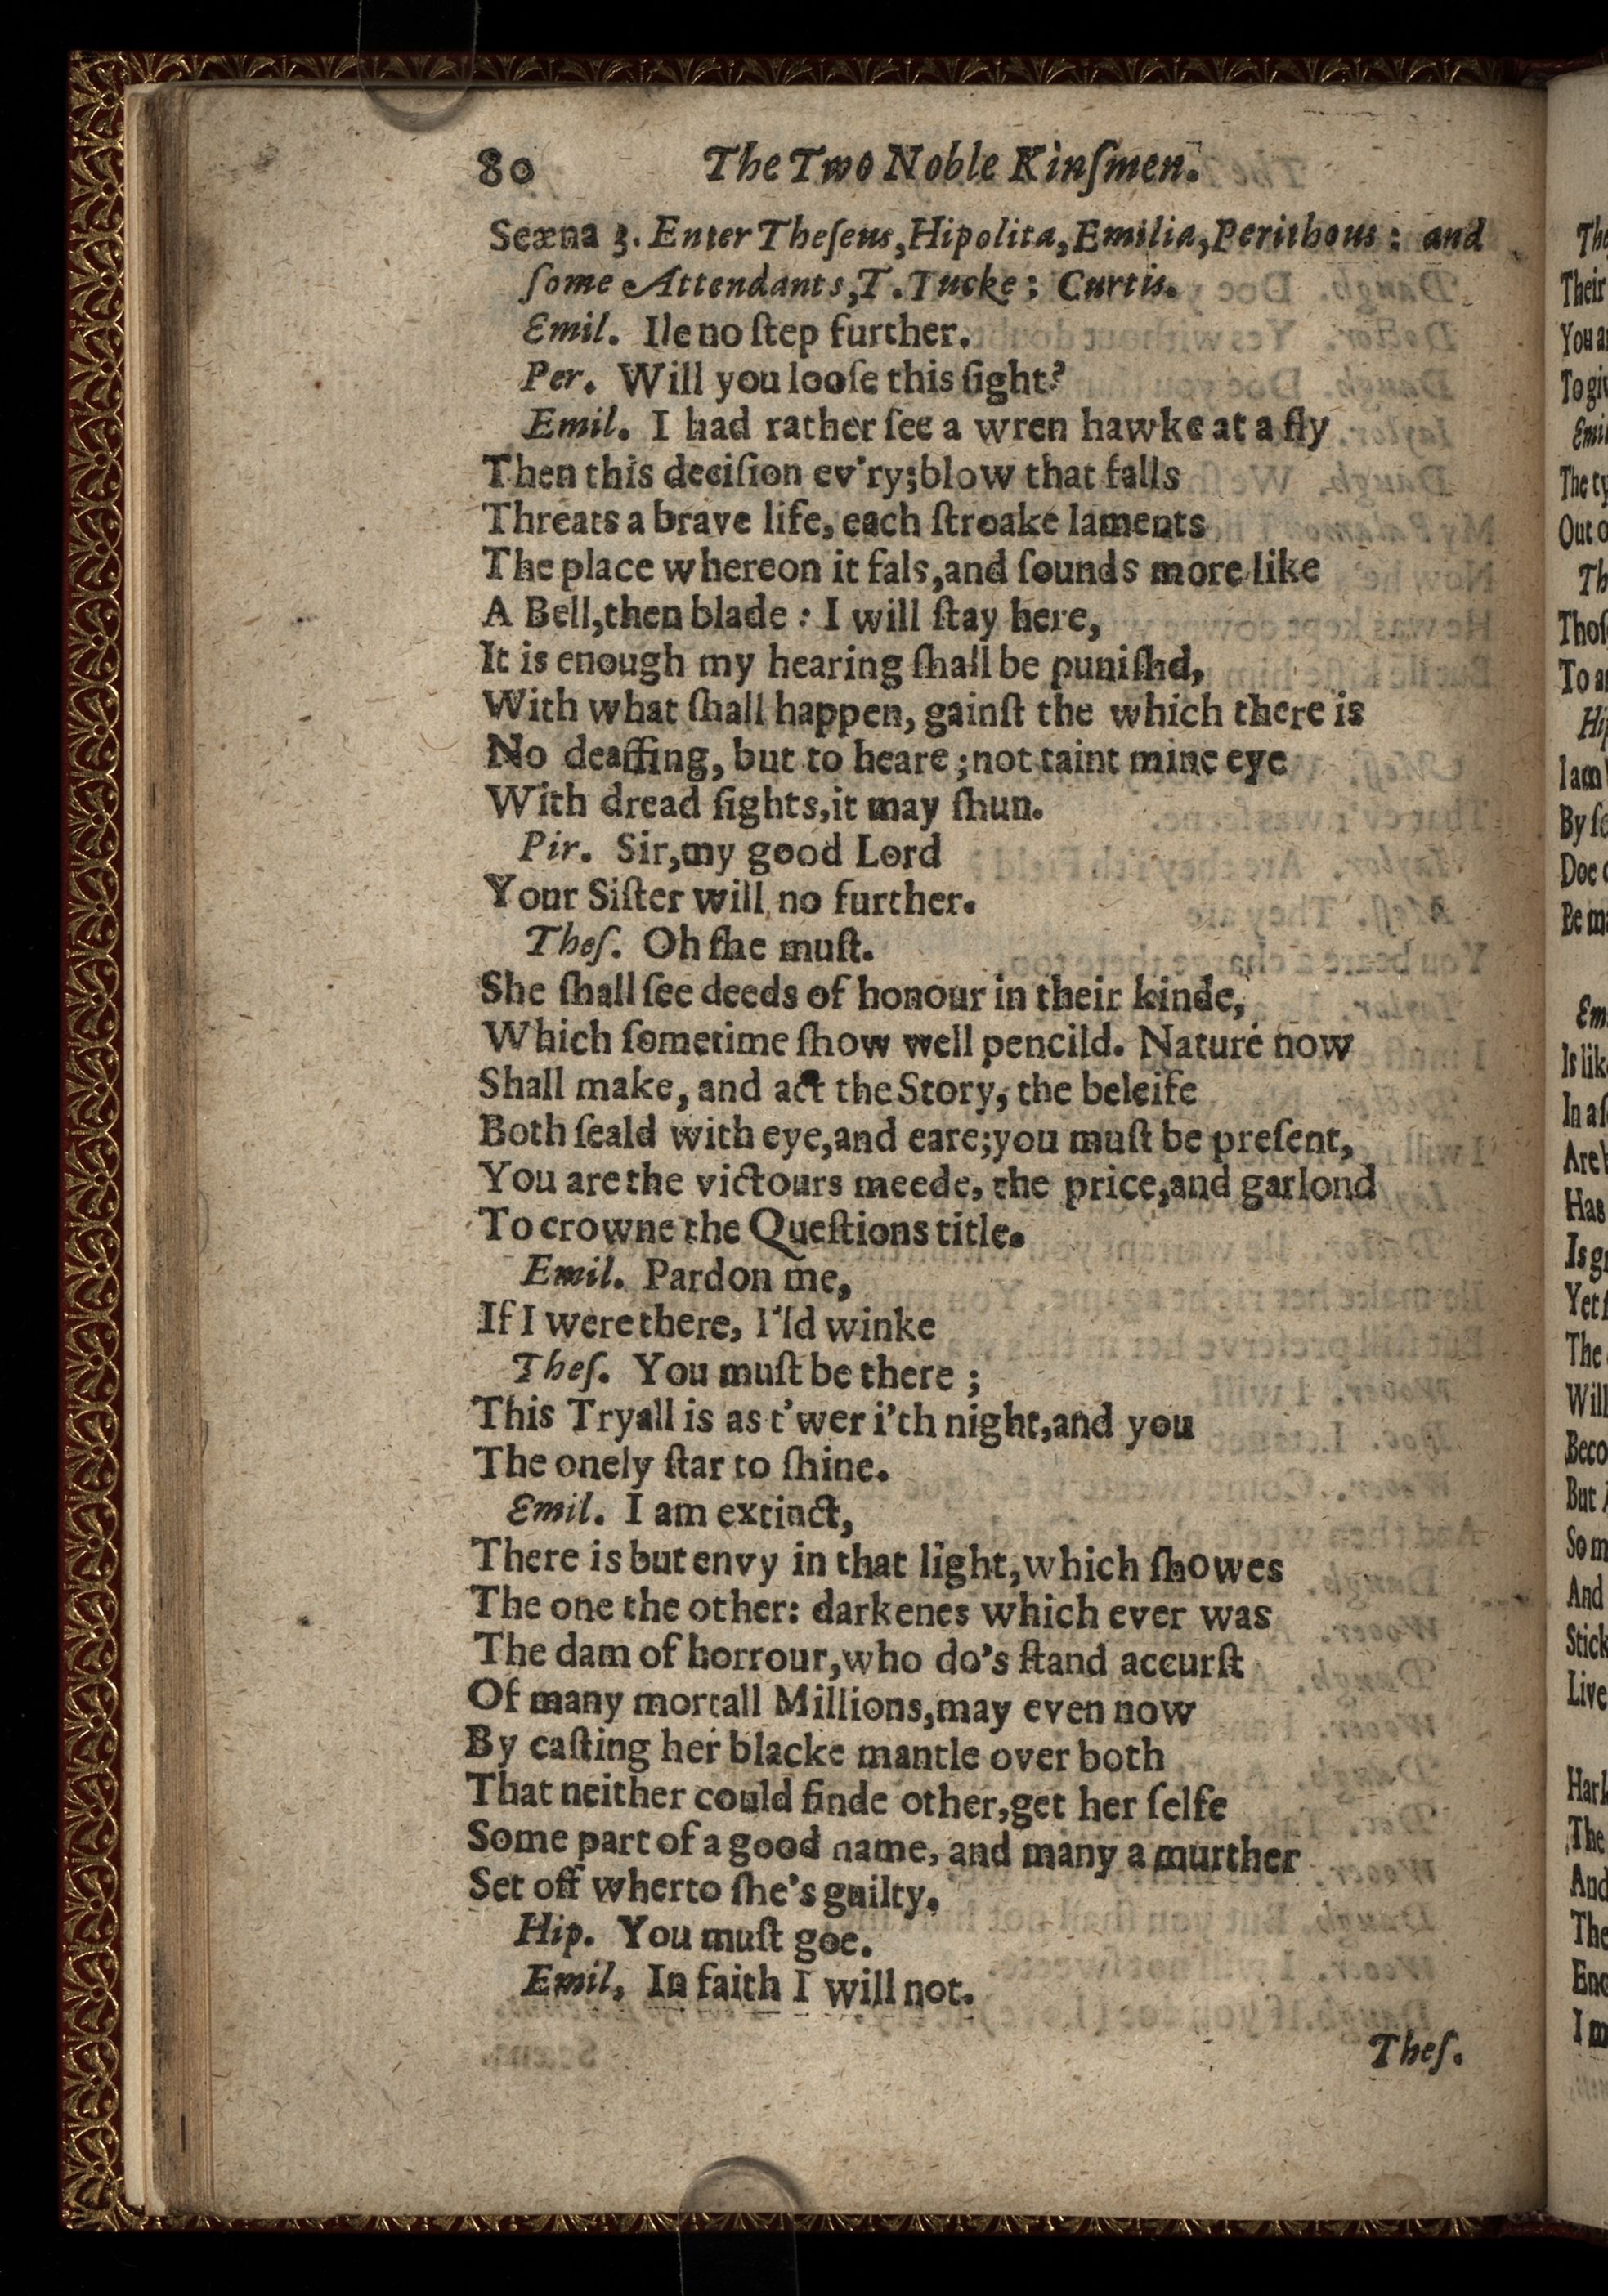 80 The Two Noble Kinſmen.
Scæna 3. Enter Theſeus, Hipolita, Emilia, Perithous: and
ſome Attendants, T. Tucke: Curtis.
Emil. Ile no ſtep further.
Per. Will you looſe this ſight?
Emil. I had rather ſee a wren hawke at a fly
Then this deciſion ev'ry; blow that falls
Threats a brave life, each ſtroake laments
The place whereon it fals, and ſounds more like
A Bell, then blade: I will ſtay here,
It is enough my hearing ſhall be puniſhd,
With what ſhall happen, gainſt the which there is
No deaffing, but to heare; not taint mine eye
With dread ſights, it may ſhun.
Pir. Sir, my good Lord
Your Siſter will no further.
Theſ. Oh ſhe muſt.
She ſhall ſee deeds of honour in their kinde,
Which ſometime ſhow well pencild. Nature now
Shall make, and act the Story, the beleife
Both ſeald with eye, and eare; you muſt be preſent,
You are the victours meede, the price, and garlond
To crowne the Queſtions title.
Emil. Pardon me,
If I were there, I'ld winke
Theſ. You muſt be there;
This Tryall is as t'wer i'th night, and you
The onely ſtar to ſhine.
Emil. I am extinct,
There is but envy in that light, which ſhowes
The one the other: darkenes which ever was
The dam of horrour, who do's ſtand accurſt
Of many mortall Millions, may even now
By caſting her blacke mantle over both
That neither could finde other, get her ſelfe
Some part of a good name, and many a murther
Set off wherto ſhe's guilty.
Hip. You muſt goe.
Emil, In faith I will not.
Theſ.
Their